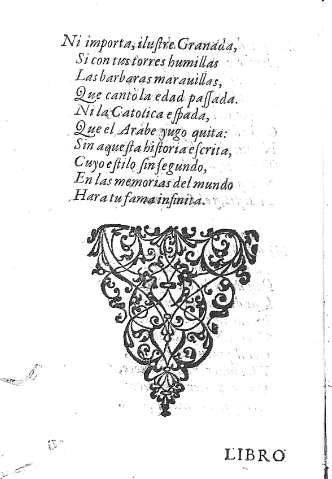 Ni importa, iluſtre Granada,
Si con tus torres humillas
Las barbaras marauillas,
Que cantò la edad paſſada.
Ni la Catolica eſpada,
Que el Arabe yugo quita:
Sin aqueſta hiſtoria eſcrita,
Cuyo eſtilo ſin ſegundo,
En las memorias del mundo
Hara tu fama infinita.
LIBRO